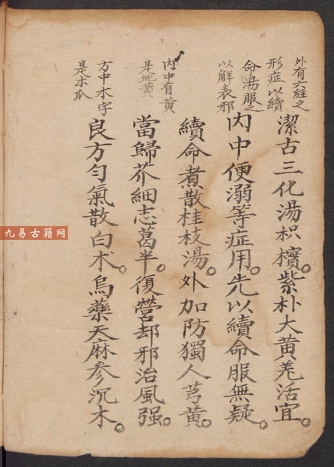 外有六經之
形症以續
命湯服之
以解表邪
潔古三化湯枳檳紫朴大黃羌活宜
内中便溺等症用先以續命服無疑
内中有黃
是地黃
續命煮散桂枝湯外加防獨人芎黃
當歸芥細志葛半復營却邪治風强
方中木字
是木瓜
良方勻氣散白术烏藥天麻參沉木
九易古籍网